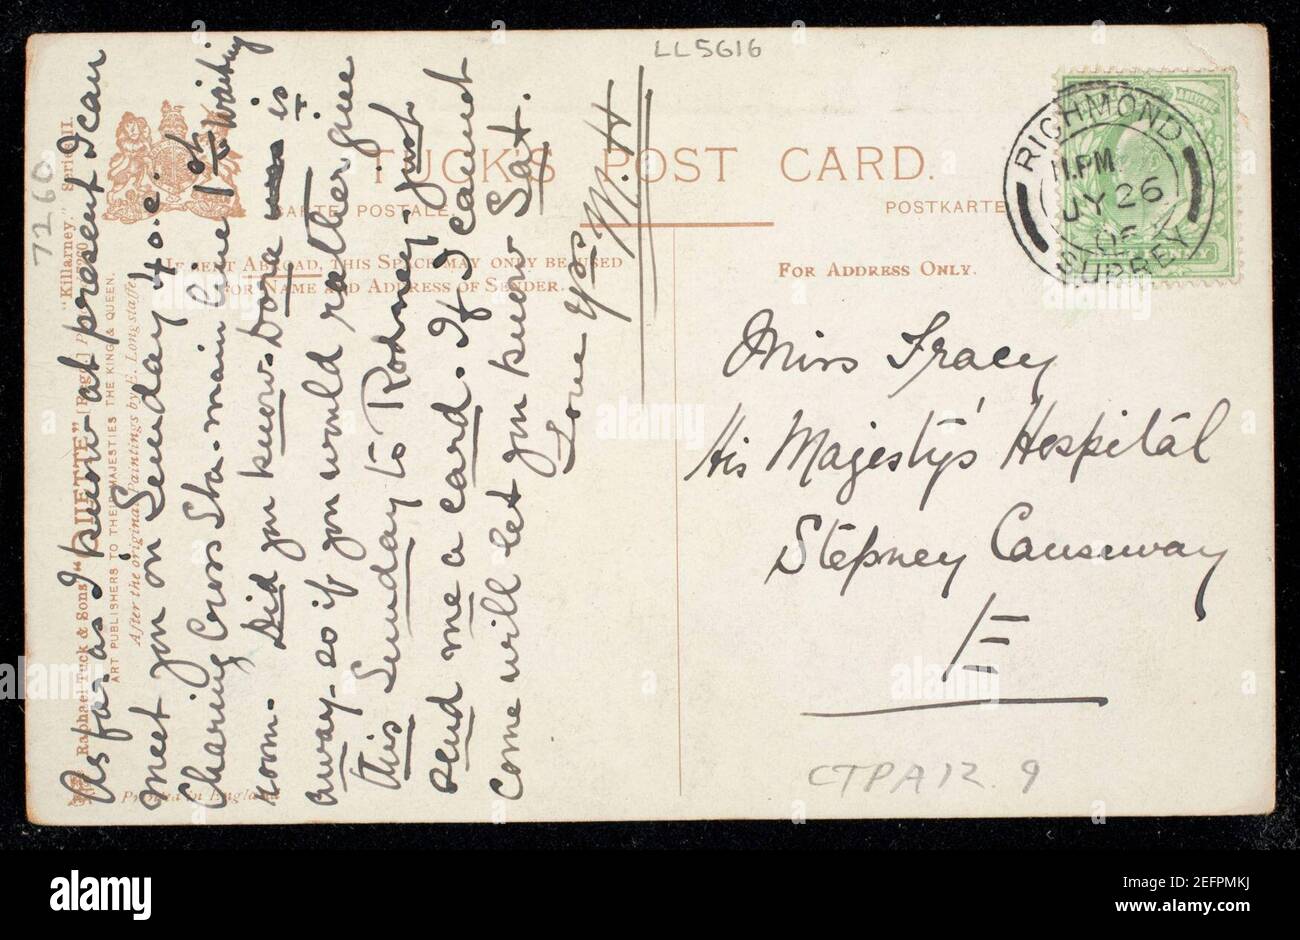 LL5616
7260
TUCK'S POST CARD.
CARTE POSTALE
POSTKARTE
IF SENT ABROAD, THIS SPACE MAY ONLY BE USED
FOR NAME AND ADDRESS OF SENDER.
FOR ADDRESS ONLY.
RICHMOND
11.PM
JY 26
06
SURREY
As far as I know at present I can
meet you on Sunday 4 o.c. at
Charing Cross Sta. main line 1st waiting
room. Did you know Dora is
away. so if you would rather give
this Sunday to Rodney - just
send me a card. If I cannot
come will let you know Sat.
Love yrs
M.H
Miss Tracy
His Majesty's Hospital
Stepney Causeway
E
CTPA12.9
Raphael Tuck & Sons' "OILETTE" [Regd.] Postcard 7260. "Killarney." Series II.
ART PUBLISHERS TO THEIR MAJESTIES THE KING & QUEEN.
After the original Paintings by E. Longstaffe
Printed in England
alamy
a
a
a
a
alamy
Image ID: 2EFPMKJ
www.alamy.com